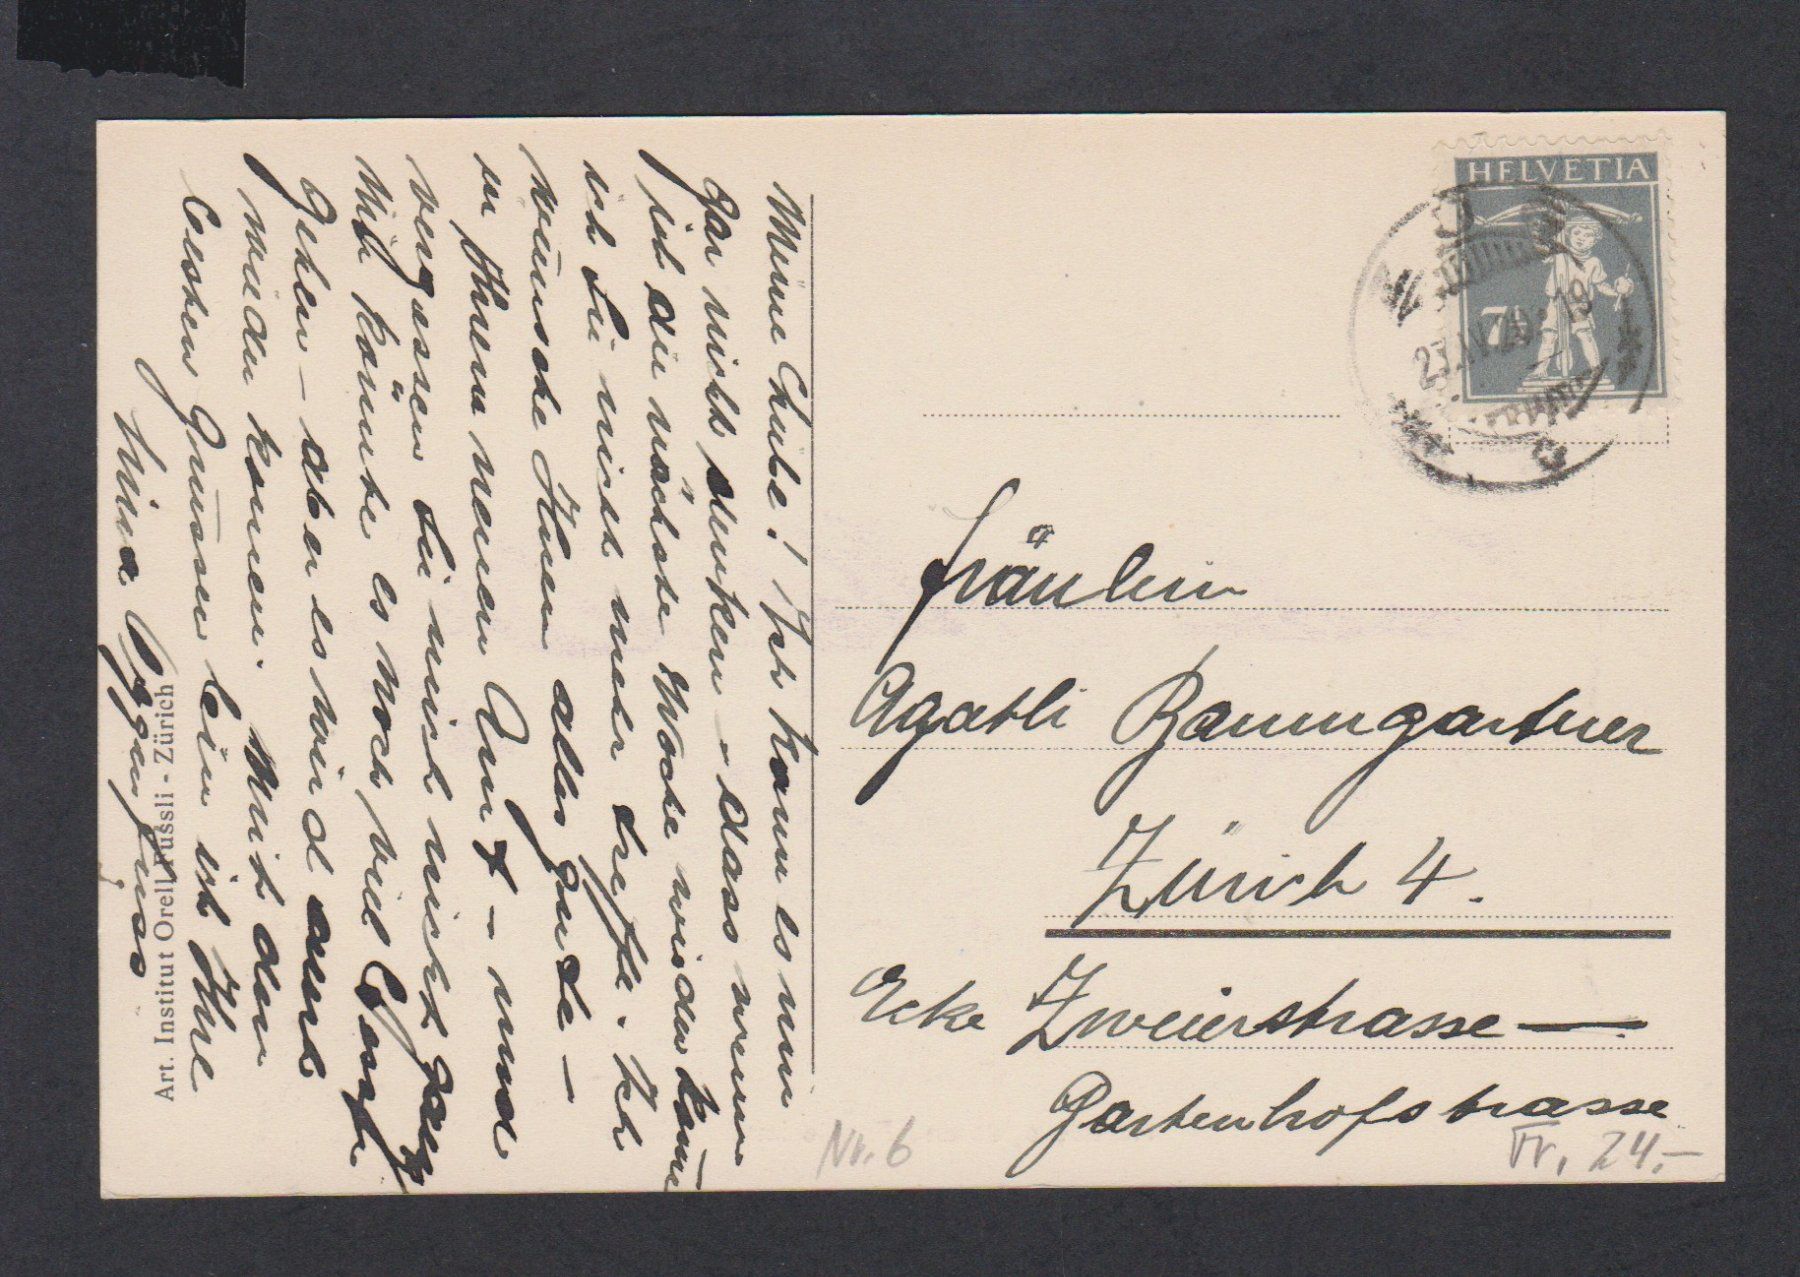 Meine Liebe! Ich kann es nun
gar nicht denken – dass wenn
ich die nächste Woche wieder kome
ich Sie nicht mehr treffe. Ich
wünsche Ihnen alles gute –
in Ihrem neuen Amt – und
vergessen Sie mich nicht ganz
Mich könnte es noch viel
gehen – aber es wird auch
wieder komen. Mit den
besten Grüssen bin ich Ihre
Lina
Art. Institut Orell Füssli - Zürich
HELVETIA
7½
Fräulein
Agathli Baumgartner
Zürich 4.
Ecke Zweierstrasse —
Gartenhofstrasse
Nr. 6
Fr. 24.–